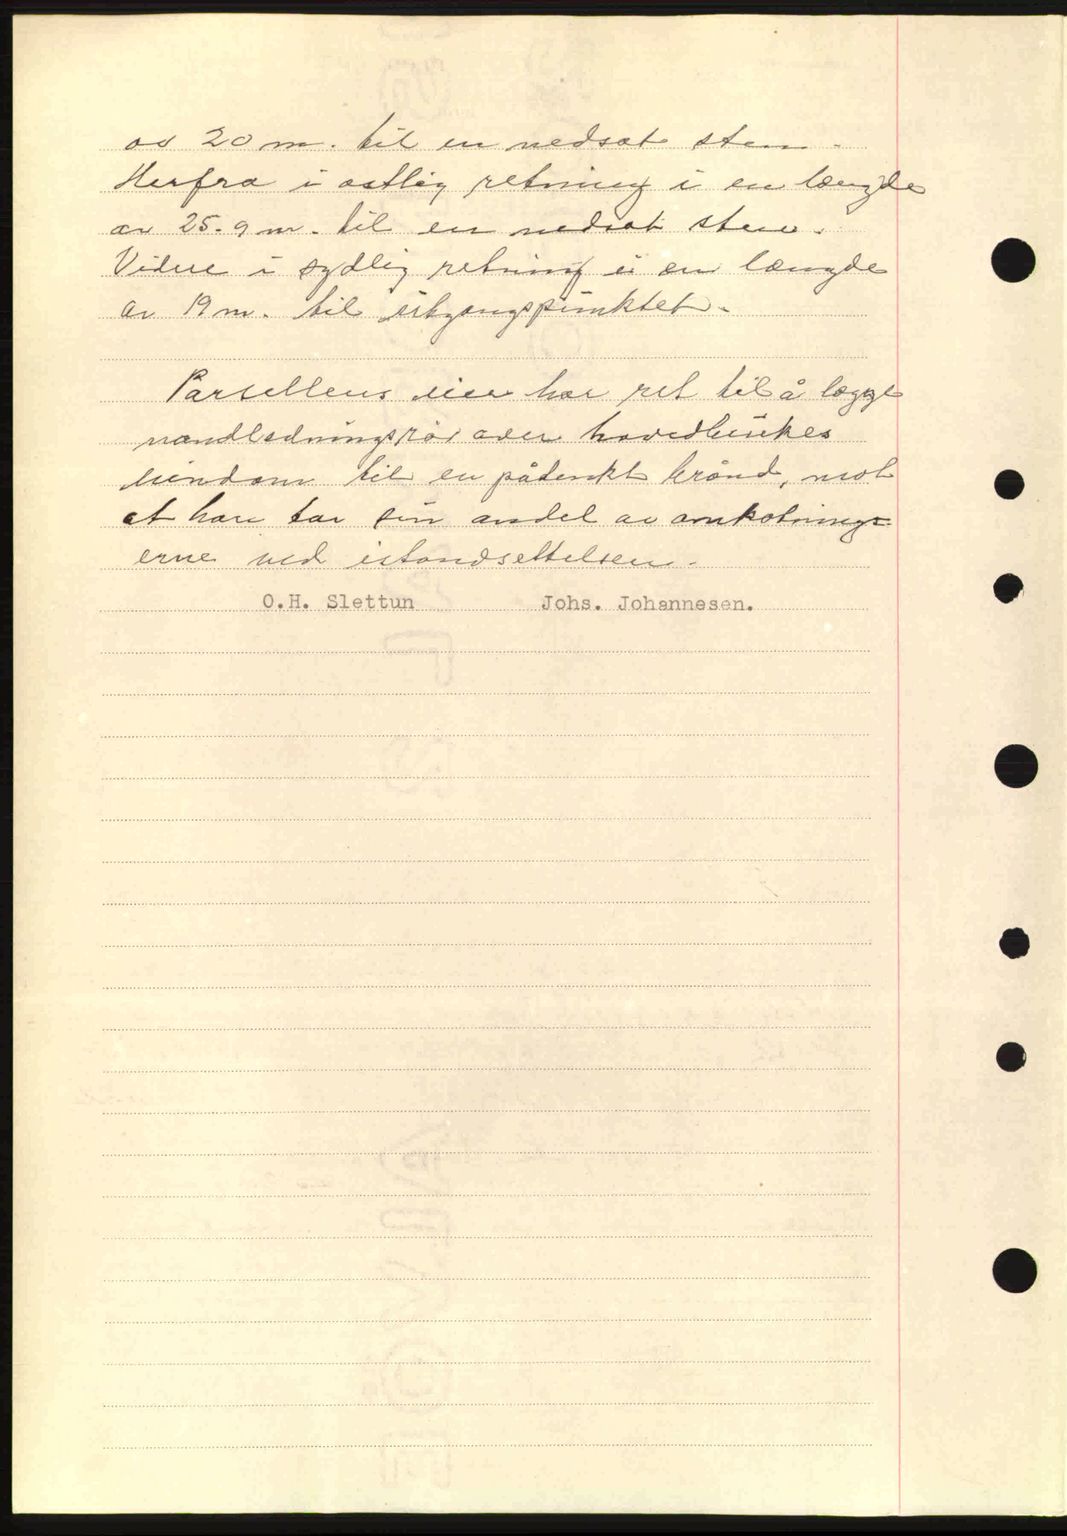 av 20 m. til en nedsat sten.
Herfra i østlig retning i en længde
av 25.9 m. til en nedsat sten.
Videre i sydlig retning i en længde
av 19 m. til utgangspunktet.
Parsellens eier har ret til å lægge
vandledningsrør over hovedbrukes
eiendom til en påtenkt brønd, mot
at han tar sin andel av omkostning-
erne ved istandsettelsen.
O.H. Slettun Johs. Johannesen.